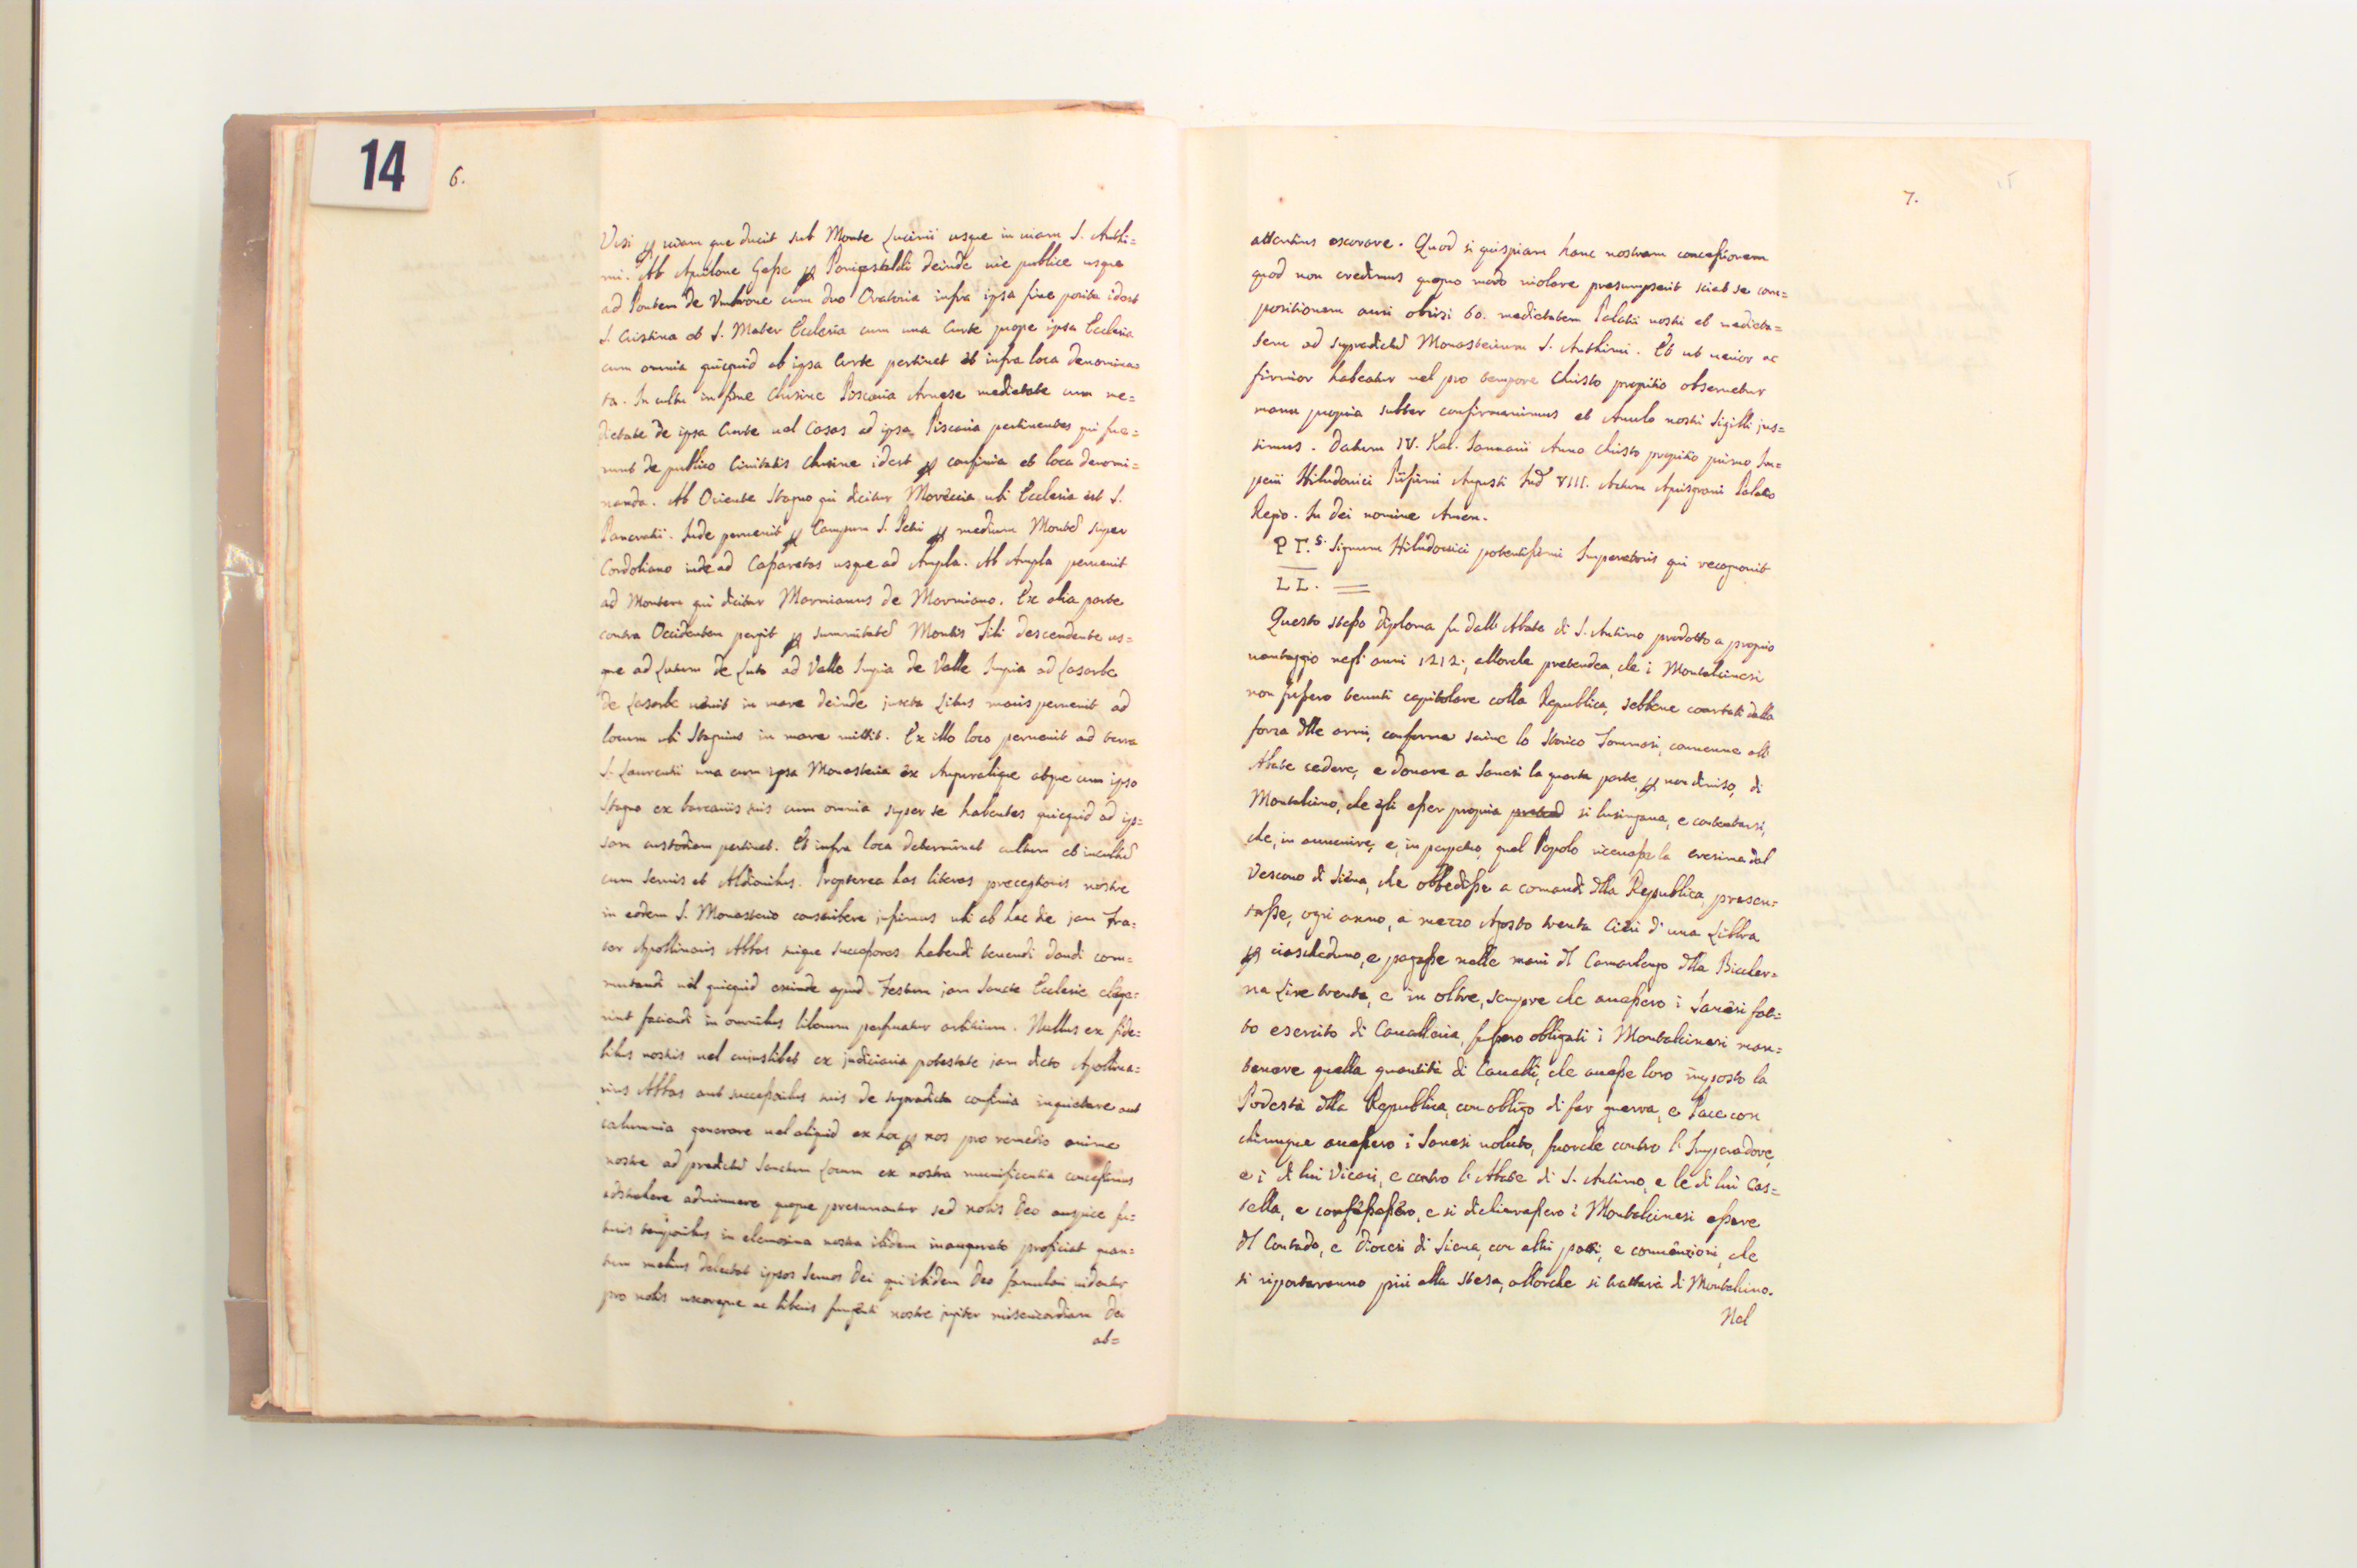 14
6.
Visi per uiam que ducit sub Monte Lucinii usque in uiam S. Anthi=
mi. Ab Aquilone Gesse per Poni deinde uie publice usque
ad Pontem de Umbrone cum duo Oratoria infra ipsa fine posita idest
S. Cristina et S. Mater Ecclesia cum una Curte prope ipsa Ecclesia
cum omnia quicquid ab ipsa Curte pertinet et infra loca denomina=
ta. In cultu in fine Clusine Poscaria Arnese medietate cum me=
dietate de ipsa Curte uel Casas ad ipsa Piscaria pertinentes qui fue=
runt de publico Ciuitatis Clusine idest per confinia et loca denomi=
nanda. Ab Oriente Stagno qui dicitur Moreccia ubi Ecclesia est S.
Pancratii. Inde peruenit per Campum S. Petri per medium Monte super
Cordoliano inde ad Casparetas usque ad Ampla. Ab Ampla peruenit
ad Montem qui dicitur Marmianus de Marmiano. Ex alia parte
contra Occidentem pergit per summitate Montis Titi descendente us=
que ad Lutum de Luto ad Valle Inpia de Valle Inpia ad Casarbe
de Casarbe uenit in mare deinde juxta Litus maris peruenit ad
locum ubi Stagnus in mare mittit. Ex illo loco peruenit ad terra
S. Laurentii una cum ipsa Monasteria ex atque cum ipso
Stagno ex barcariis suis cum omnia super se habentes quicquid ad ip=
sam custodiam pertinet. Et infra loca determinat cultum et incultu
cum Seruis et Aldionibus. Propterea has literas preceptionis nostre
in eodem S. Monasterio conscribere jussimus ubi ab hac die jam Fra=
ter Apollinaris Abbas suique successores habendi tenendi dandi com=
mutandi uel quicquid exinde apud Festum jam Sancte Ecclesie elege=
rint faciendi in omnibus liberum perfruatur arbitrium. Nullus ex fide=
libus nostris uel cuiuslibet ex judiciaria potestate jam dicto Apolina=
rius Abbas aut successoribus suis de supradicta confinia inquietare aut
calumnia generare uel aliquid ex hoc per nos pro remedio anime
nostre ad predictu Sanctum Locum ex nostra munificentia concessimus
abstrahere adminuere quoque presumantur sed nobis Deo auspice fu=
turis temporibus in elemosina nostra ibidem inaugurato proficiat quan=
tum melius delectat ipsos Seruos Dei qui ibidem Deo famulari uidentur
pro nobis uxoreque ac liberis nostre jugiter misericordiam Dei
ab=
7.
15
attentius exorare. Quod si quispiam hanc nostram concessionem
quod non credimus quoquo modo uiolare presumpserit sciat se com=
positionem auri obrizi 60. medietatem Palatii nostri et medieta=
tem ad supradictu Monasterium S. Anthimi. Et ut uerior ac
firmior habeatur uel pro tempore Christo propitio obseruetur
manu propria subter confirmauimus et Anulo nostri Sigilli jus=
simus. Datum IV. Kal. Januarii Anno Christo propitio primo Im=
perii Hiludouici Piissimi Augusti Ind. VIII. Actum Aquisgrani Palatio
Regio. In dei nomine Amen.
P T.S. Signum Hiludouici potentissimi Imperatoris qui recognouit
L L.
Questo stesso Diploma fu dall' Abate di S. Antimo prodotto a proprio
uantaggio negl' anni 1212., allorche pretendea, che i Montalcinesi
non fussero tenuti capitolare colla Republica, sebbene coartati dalla
forza dlle armi, conforme scriue lo Storico Tommasi, conuenne all'
Abate cedere, e donare a Sanesi la quarta parte, per non diuiso, di
Montalcino, che egli esser propria pretend si lusingaua, e contentarsi,
che, in auuenire, e, in perpetuo, quel Popolo riceuesse la cresima dal
Vescouo di Siena, che obbedisse a comandi dlla Republica, presen=
tasse, ogni anno, a mezzo Agosto trenta Ceri d' una Libbra
per ciascheduno, e pagasse nelle mani dl Camarlengo dlla Biccher=
na Lire trenta, e in oltre, sempre che auessero i Sanesi fat=
to esercito di Caualleria, fussero obbligati i Montalcinesi man=
tenere quella quantità di Caualli, che auesse loro imposto la
Podestà dlla Republica, con obbligo di far guerra, e Pace con
chiunque auessero i Sanesi uoluto, fuorche contro l' Imperadore,
e i di lui Vicari, e contro l' Abate di S. Antimo, e le di lui Cas=
tella, e confessassero, e si dichiarassero i Montalcinesi essere
dl Contado, e Diocesi di Siena, con altri patti, e conuenzioni, che
si riporteranno più alla stesa, allorche si trattarà di Montalcino.
Nel